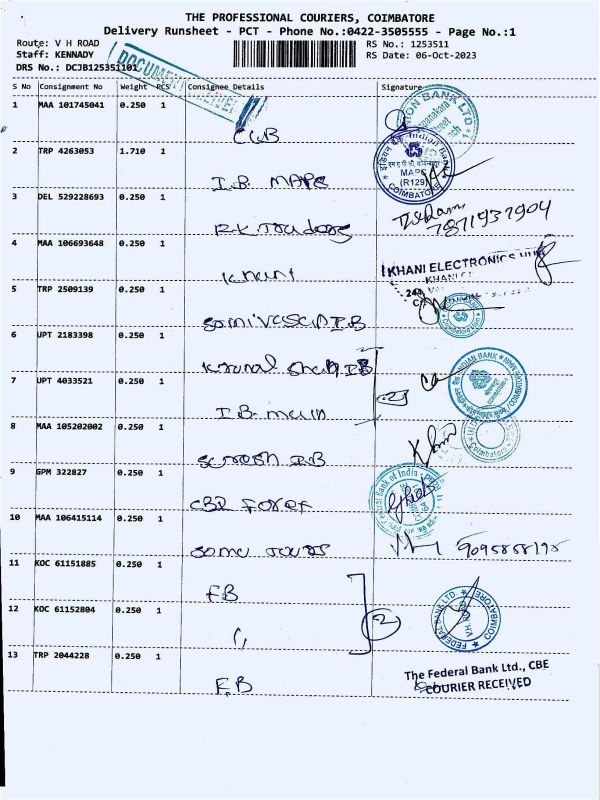 THE PROFESSIONAL COURIERS, COIMBATORE
Delivery Runsheet - PCT - Phone No.:0422-3505555 - Page No.:1
Route: V H ROAD
RS No.: 1253511
Staff: KENNADY
RS Date: 06-Oct-2023
DRS No.: DCJB125351101
S No Consignment No Weight PCS Consignee Details Signature
1 MAA 101745041 0.250 1
CUB
2 TRP 4263053 1.710 1
I.B. MAPS
MAPS
(R129)
COIMBATORE
3 DEL 529228693 0.250 1
7871937904
4 MAA 106693648 0.250 1
Khani
KHANI ELECTRONICS
5 TRP 2509139 0.250 1
I.B
6 UPT 2183398 0.250 1
Kunal Shah I.B
7 UPT 4033521 0.250 1
I.B. main
INDIAN BANK
8 MAA 105202002 0.250 1
Suresh I.B
9 GPM 322827 0.250 1
CBI Forex
Central Bank of India
10 MAA 106415114 0.250 1
9095858195
11 KOC 61151885 0.250 1
F.B
12 KOC 61152804 0.250 1
"
2
FEDERAL BANK LTD.
COIMBATORE
13 TRP 2044228 0.250 1
F.B
The Federal Bank Ltd., CBE
COURIER RECEIVED